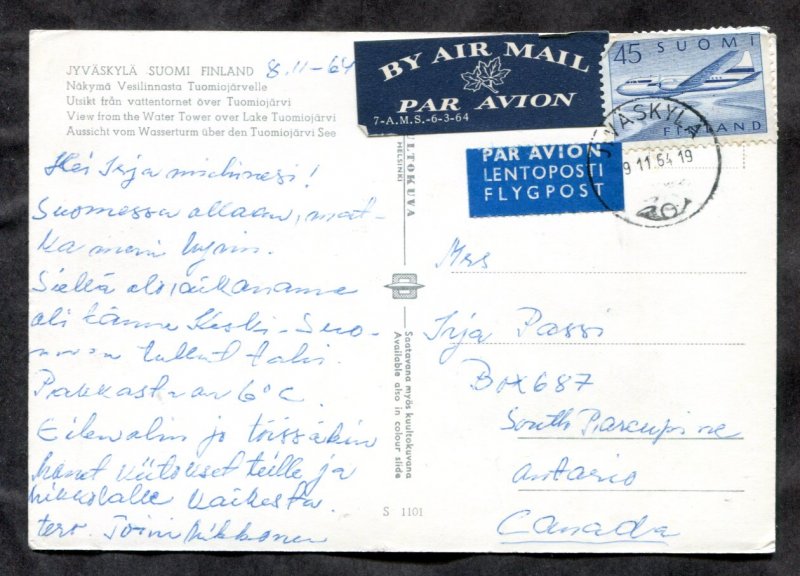 JYVÄSKYLÄ SUOMI FINLAND 8.11-64
Näkymä Vesilinnasta Tuomiojärvelle
Utsikt från vattentornet över Tuomiojärvi
View from the Water Tower over Lake Tuomiojärvi
Aussicht vom Wasserturm über den Tuomiojärvi See
Hei Irja miehinesi!
Suomessa ollaan, mat-
ka meni hyvin.
Siellä
oli tänne Keski-Suo-
tullut talvi.
Pakkasta on 6°C.
Eilen olin jo töissäkin
kiitokset teille ja
Mikkolalle kaikesta.
terv. Toini Mikkonen
KULTOKUVA
HELSINKI
Saatavana myös kuultokuvana
Available also in colour slide
S 1101
BY AIR MAIL
PAR AVION
7-A.M.S.-6-3-64
PAR AVION
LENTOPOSTI
FLYGPOST
45 SUOMI
FINLAND
JYVÄSKYLÄ
9.11.64 19
Mrs
Irja Passi
Box 687
South Porcupine
Ontario
Canada